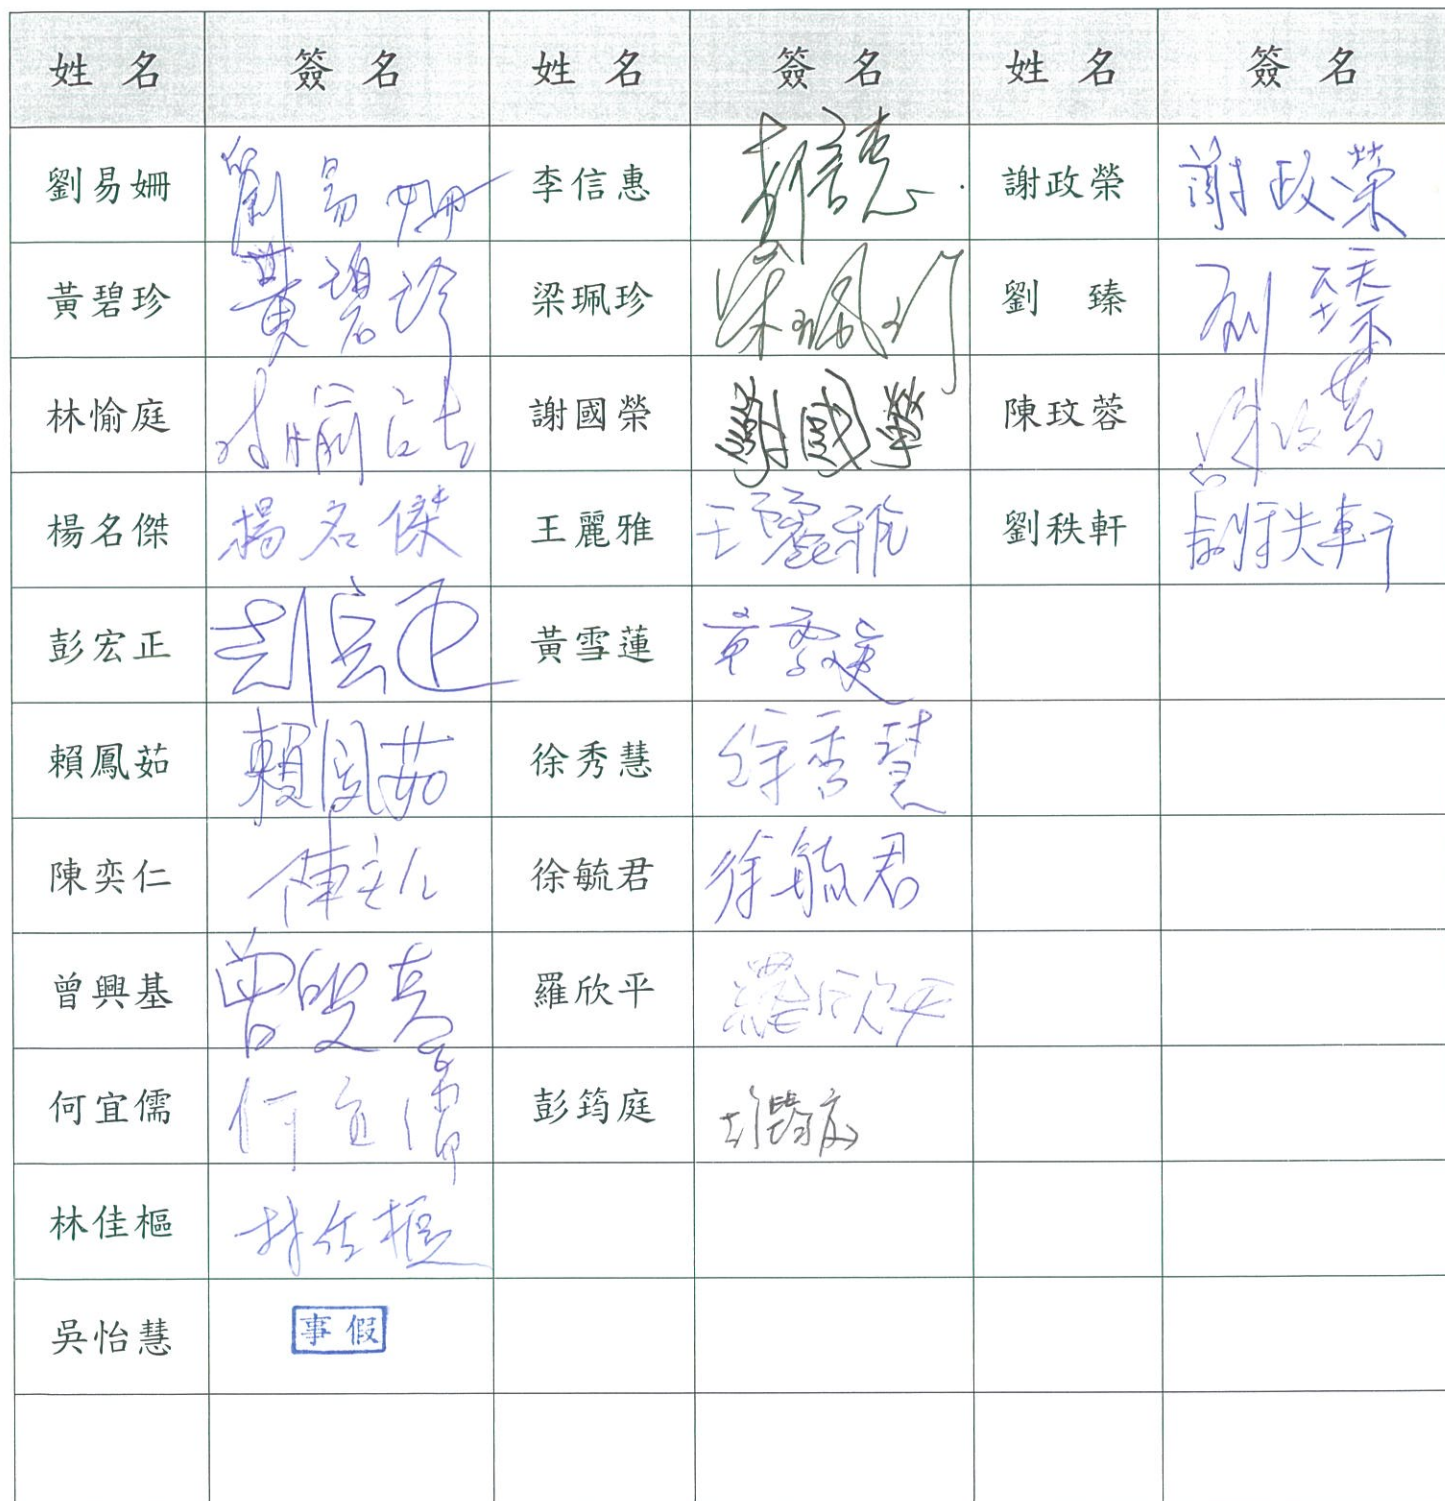 姓名 簽名 姓名 簽名 姓名 簽名
劉易姍 劉易姍 李信惠 謝政榮 謝政榮
黃碧珍 黃碧珍 梁珮珍 梁珮 劉 臻 劉臻
林愉庭 林愉庭 謝國榮 謝國榮 陳玟蓉 陳玟蓉
楊名傑 楊名傑 王麗雅 王麗雅 劉秩軒 劉秩軒
彭宏正 彭宏正 黃雪蓮 黃雪蓮
賴鳳茹 賴鳳茹 徐秀慧 徐秀慧
陳奕仁 陳奕仁 徐毓君 徐毓君
曾興基 曾興基 羅欣平 羅欣平
何宜儒 何宜儒 彭筠庭 彭筠庭
林佳樞 林佳樞
吳怡慧 事假